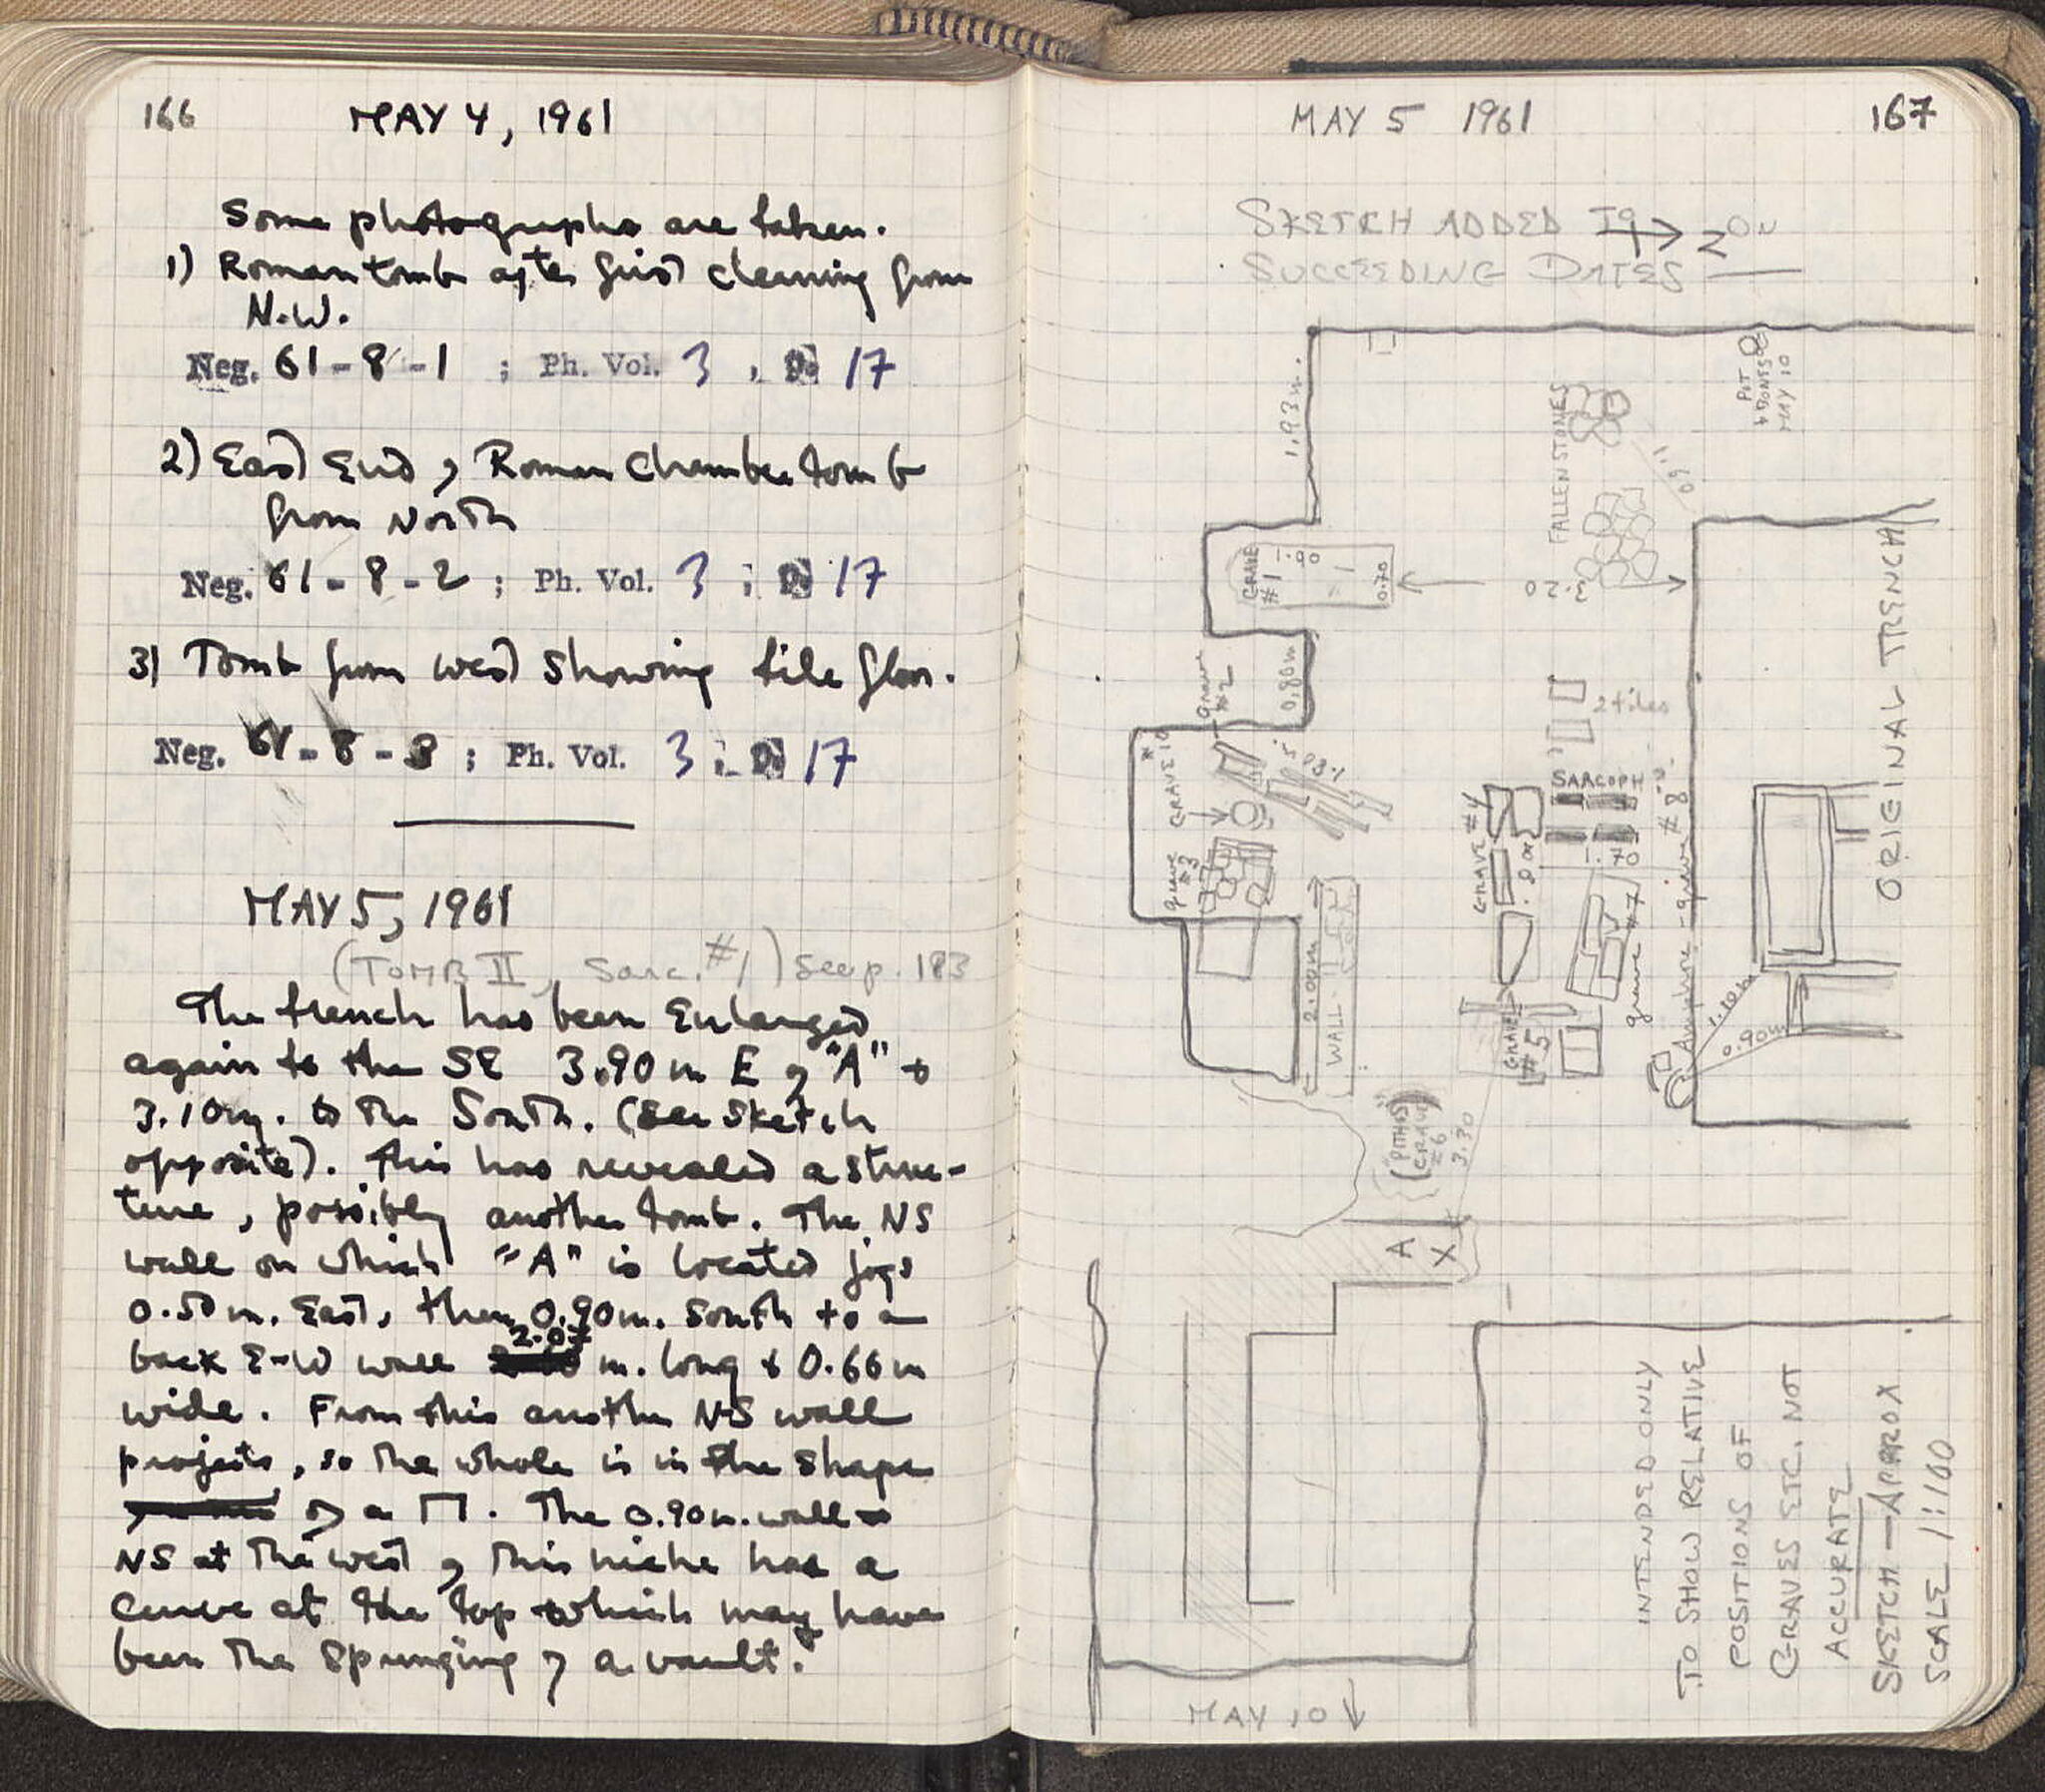 166 MAY 4, 1961
Some photographs are taken.
1) Roman tomb after first cleaning from
N.W.
Neg. 61-8-1 ; Ph. Vol. 3, p. 17
2) East End of Roman Chamber tomb
from North
Neg. 61-8-2 ; Ph. Vol. 3 ; p. 17
3) Tomb from west showing tile floor.
Neg. 61-8-3 ; Ph. Vol. 3 ; p. 17
MAY 5, 1961
(TOMB II, Sarc. #1) See p. 183
The trench has been Enlarged
again to the SE 3.90 m E of "A" &
3.10 m. to the South. (See Sketch
opposite). This has revealed a struc-
ture, possibly another tomb. The NS
wall on which "A" is located jogs
0.50 m. East, then 0.90 m. South to a
back E-W wall 2.07 m. long & 0.66 m
wide. From this another NS wall
projects, so the whole is in the shape
of a Π. The 0.90 m. wall
NS at the west of this niche has a
curve at the top which may have
been the springing of a vault.
MAY 5 1961 167
SKETCH ADDED TO ON
SUCCEEDING DATES
N
1.93 m.
FALLEN STONES
POT
& BONES
MAY 10
1.60
GRAVE
#1
1.90
0.70
3.20
ORIGINAL TRENCH
grave
#2
0.80 m
2 tiles
GRAVE 10
1.80
SARCOPH
GRAVE #4
grave
#3
1.70
grave #7
Amphora - grave #8
2.00 m
WALL
GRAVE
#5
1.10 m
0.90 m
(PITHOS)
GRAVE
#6
3.30
A
X
INTENDED ONLY
TO SHOW RELATIVE
POSITIONS OF
GRAVES ETC. NOT
ACCURATE
SKETCH — APPROX
SCALE 1:100
MAY 10